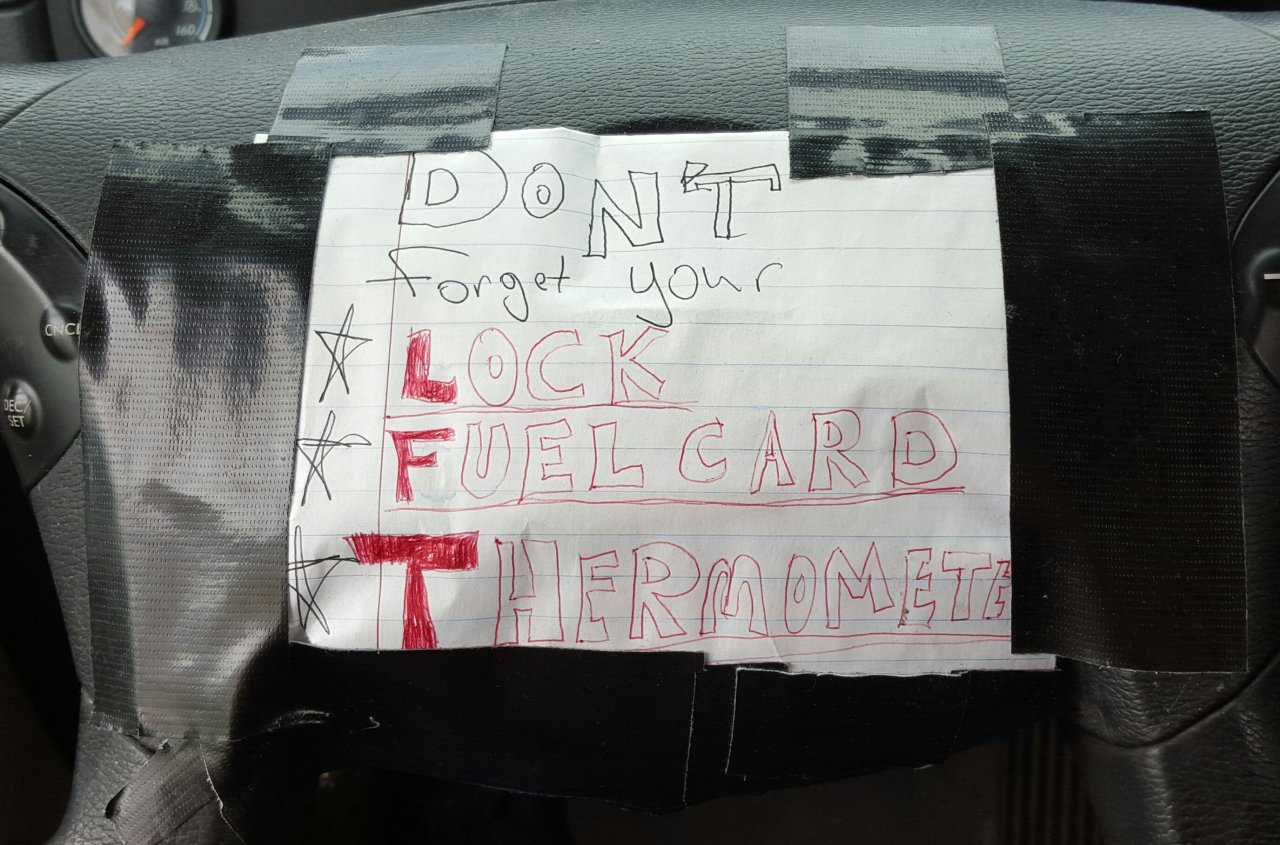 160
DON'T
forget your
LOCK
FUEL CARD
THERMOMETE
CNCL
DEC/
SET